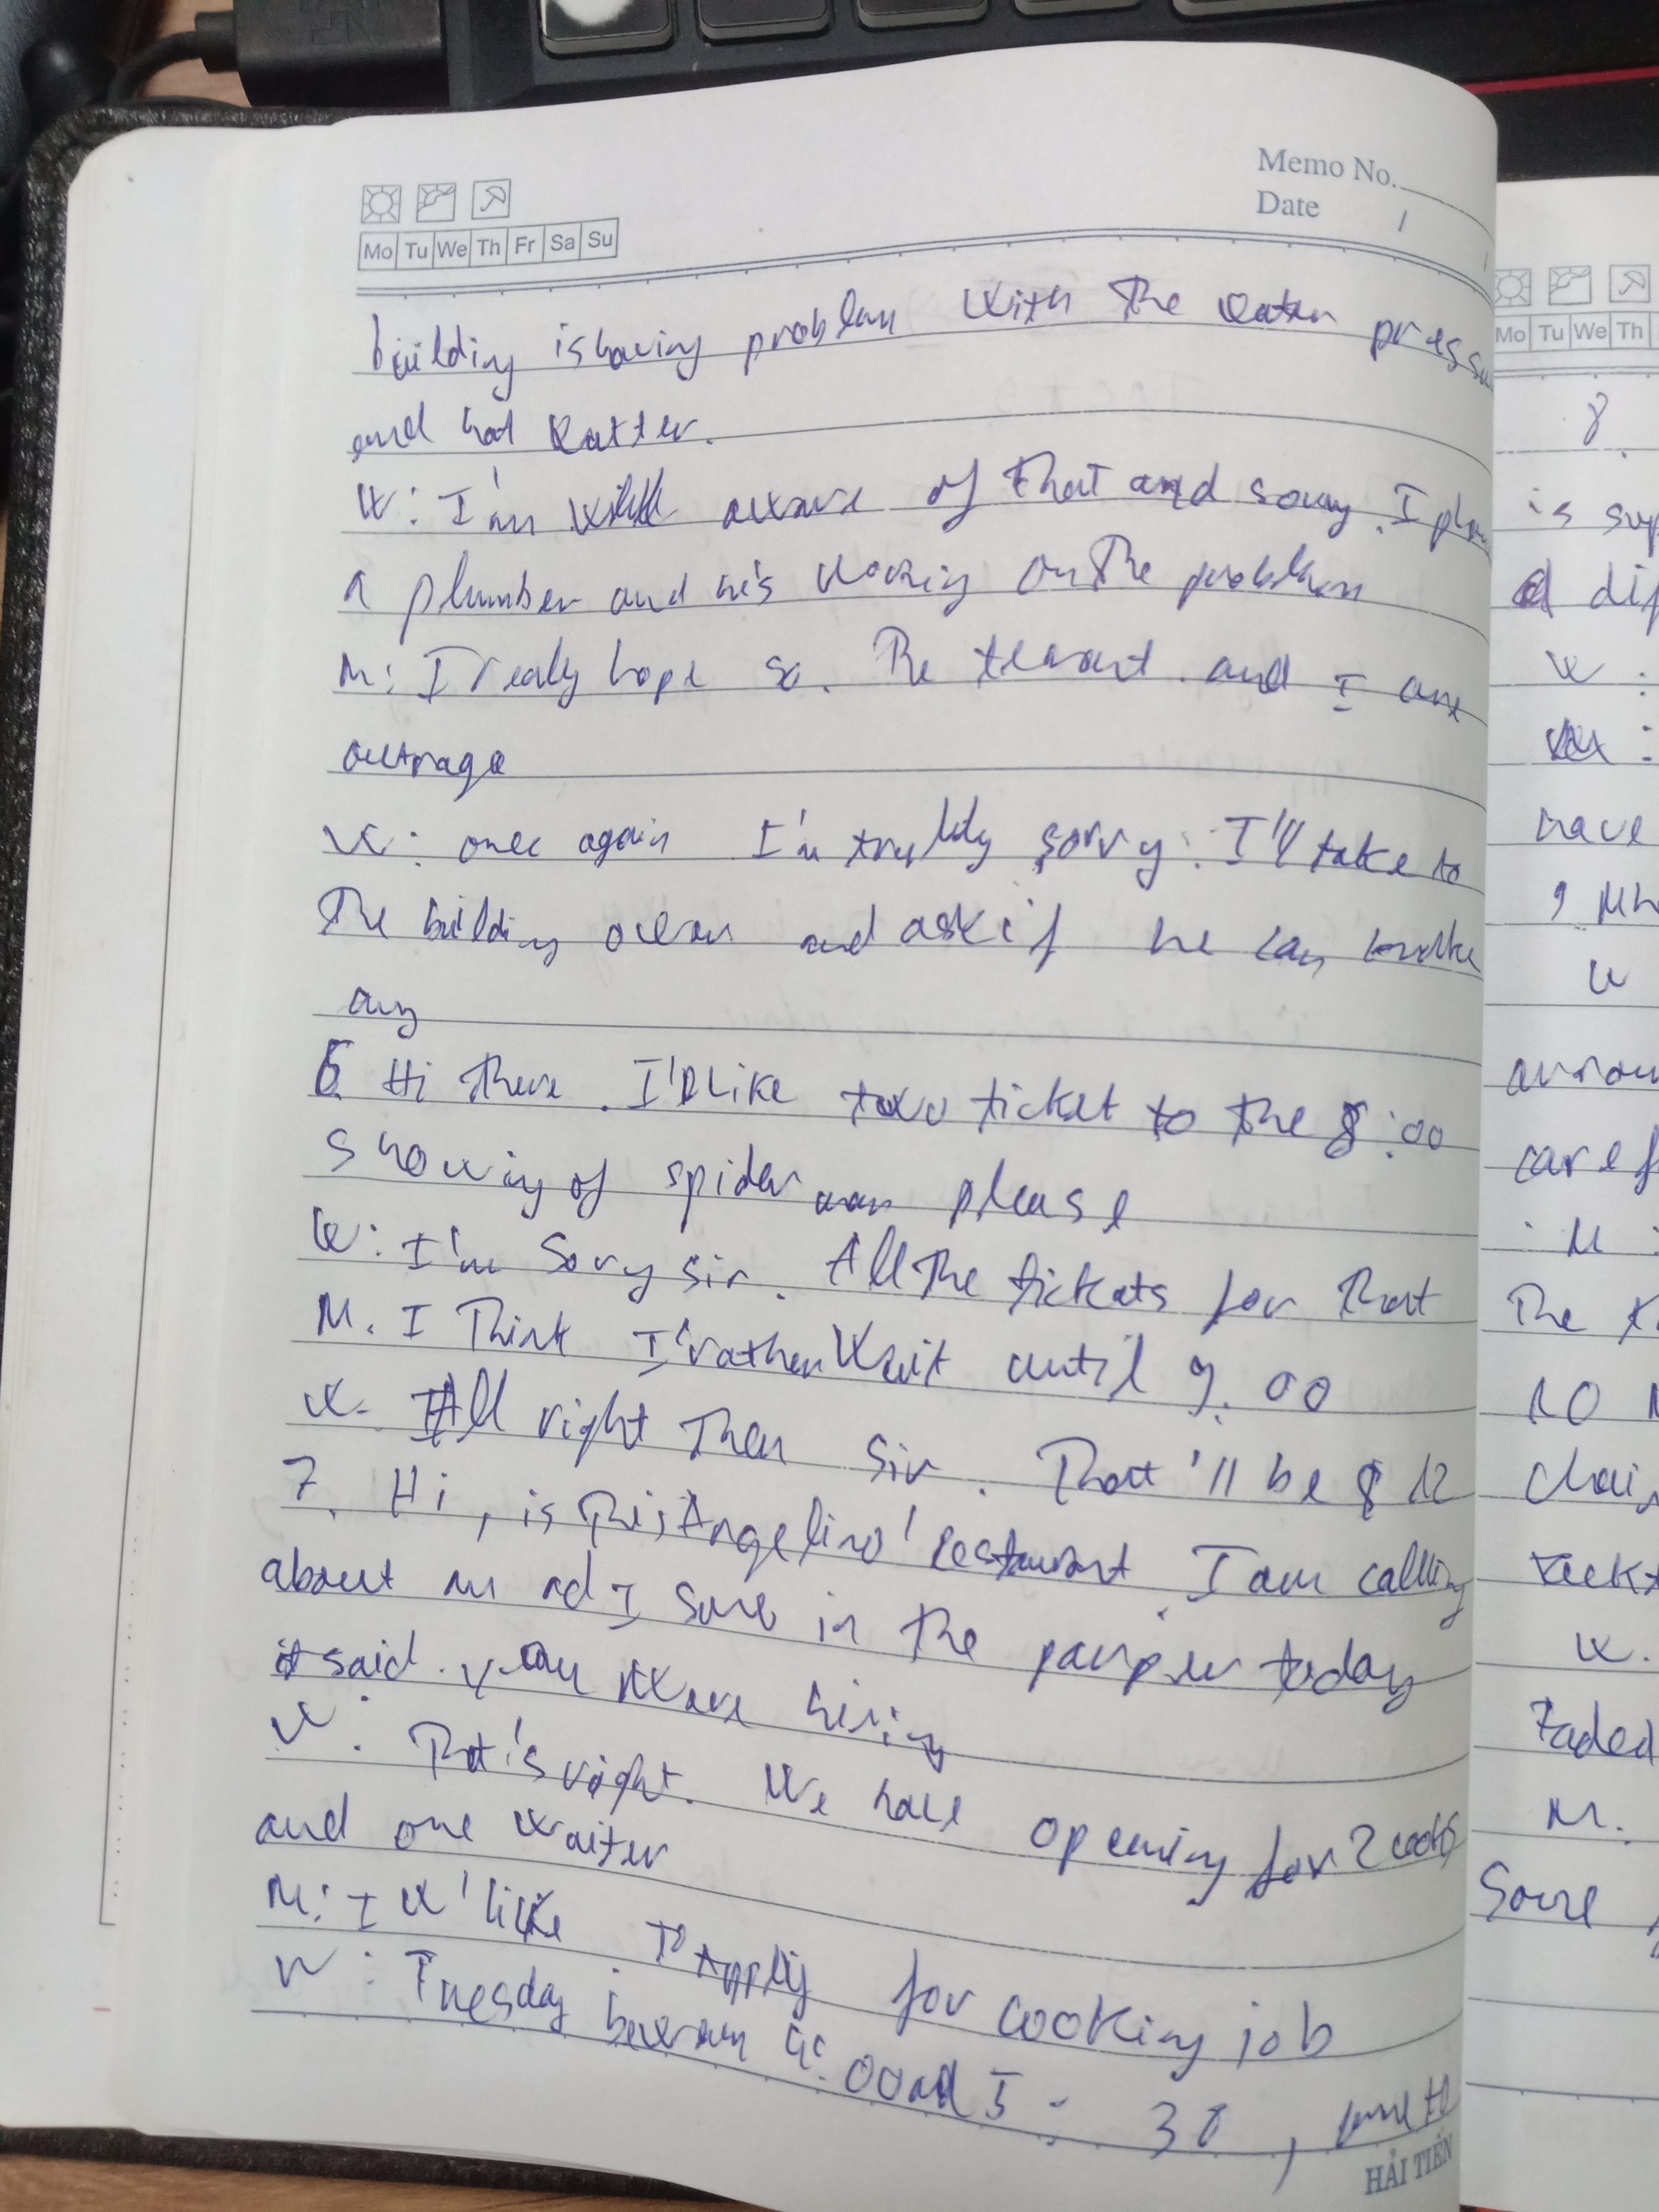 Memo No.
Date
Mo Tu We Th Fr Sa Su
building is having problem with the water pressu
and hot watter.
W: I'm well aware of that and sorry. I
a plumber and he's working on the problem
M: I realy hope so. The tenant and I are
outrage
W: once again I'm truly sorry. I'll take to
the building owner and ask if he can
any
6. Hi there. I'd like two ticket to the 8:00
showing of spider man please
W: I'm sory sir. All the tickets for that
M. I Think I'rather wait until 9:00
W. All right then sir. That'll be $12
7. Hi, is this Angelino' restaurant I am calling
about an ad I saw in the paper today
it said you were hiring
W: That's right. We have opening for 2 cooks
and one waiter
M: I W'like To Apply for cooking job
W: Tuesday between 4:00 and 5:30,
HẢI TIẾN
Mo Tu We Th
8
is sup
d dif
W:
have
W
arrou
care f
M:
The
10
chair
W.
Faded
M.
Some